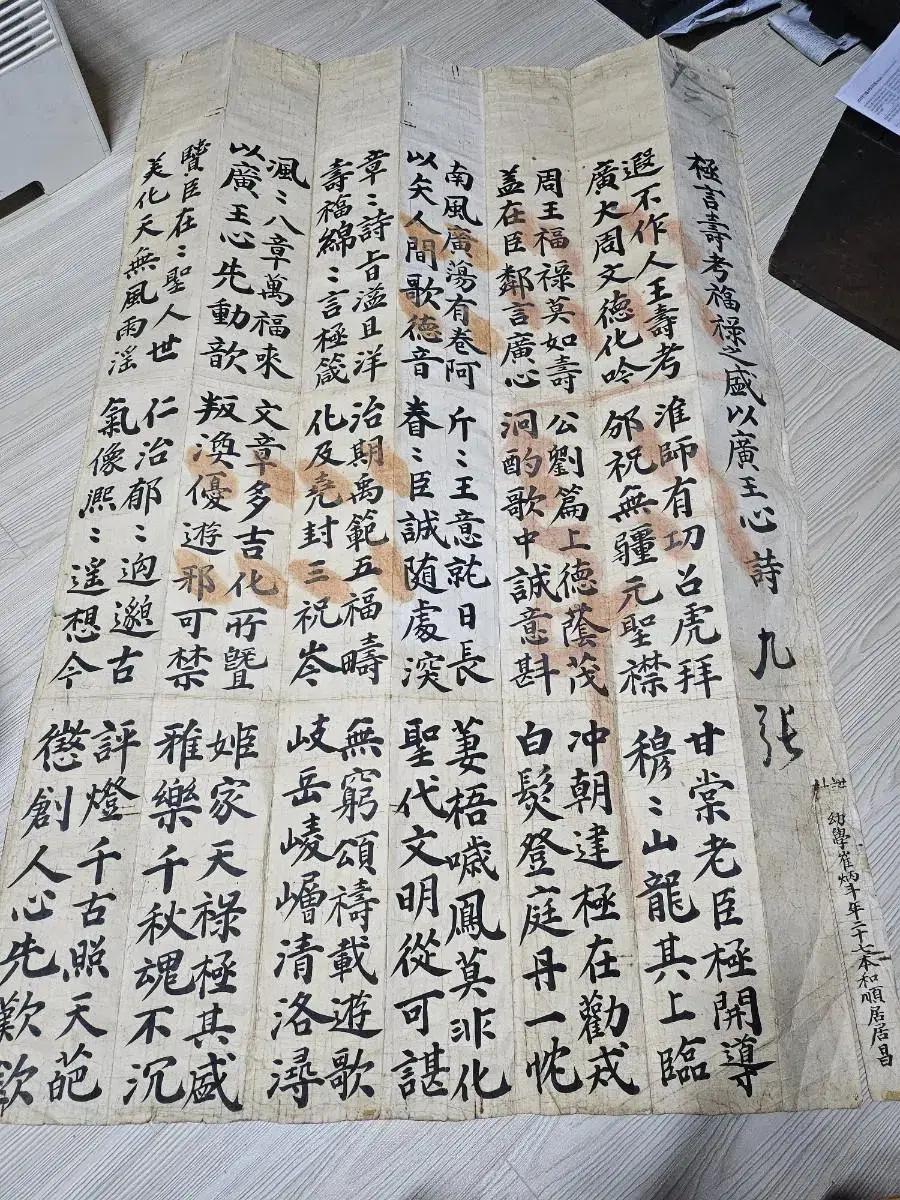 極言壽考福祿之盛以廣王心詩 九張
幼學崔炳斗年二十七本和順居居昌
遐不作人王壽考
廣大周文德化吟
淮師有功召虎拜
邠祝無疆元聖襟
甘棠老臣極開導
穆〻山龍其上臨
周王福祿莫如壽
盖在臣鄰言廣心
公劉篇上德蔭茂
泂酌歌中誠意斟
冲朝建極在勸戒
白髮登庭丹一忱
南風廣蕩有卷阿
以矢人間歌德音
斤〻王意就日長
眷〻臣誠随處深
萋梧噦鳳莫非化
聖代文明從可諶
章〻詩旨溢且洋
壽福綿〻言極箴
治期禹範五福疇
化及堯封三祝岑
無窮頌禱載遊歌
岐岳崚嶒清洛潯
渢〻八章萬福來
以廣王心先動歆
文章多吉化所曁
叛渙優遊邪可禁
姬家天祿極其盛
雅樂千秋魂不沉
賢臣在〻聖人世
美化天無風雨淫
仁治郁〻逈邈古
氣像熙〻遥想今
評燈千古照天葩
懲創人心先歎欽